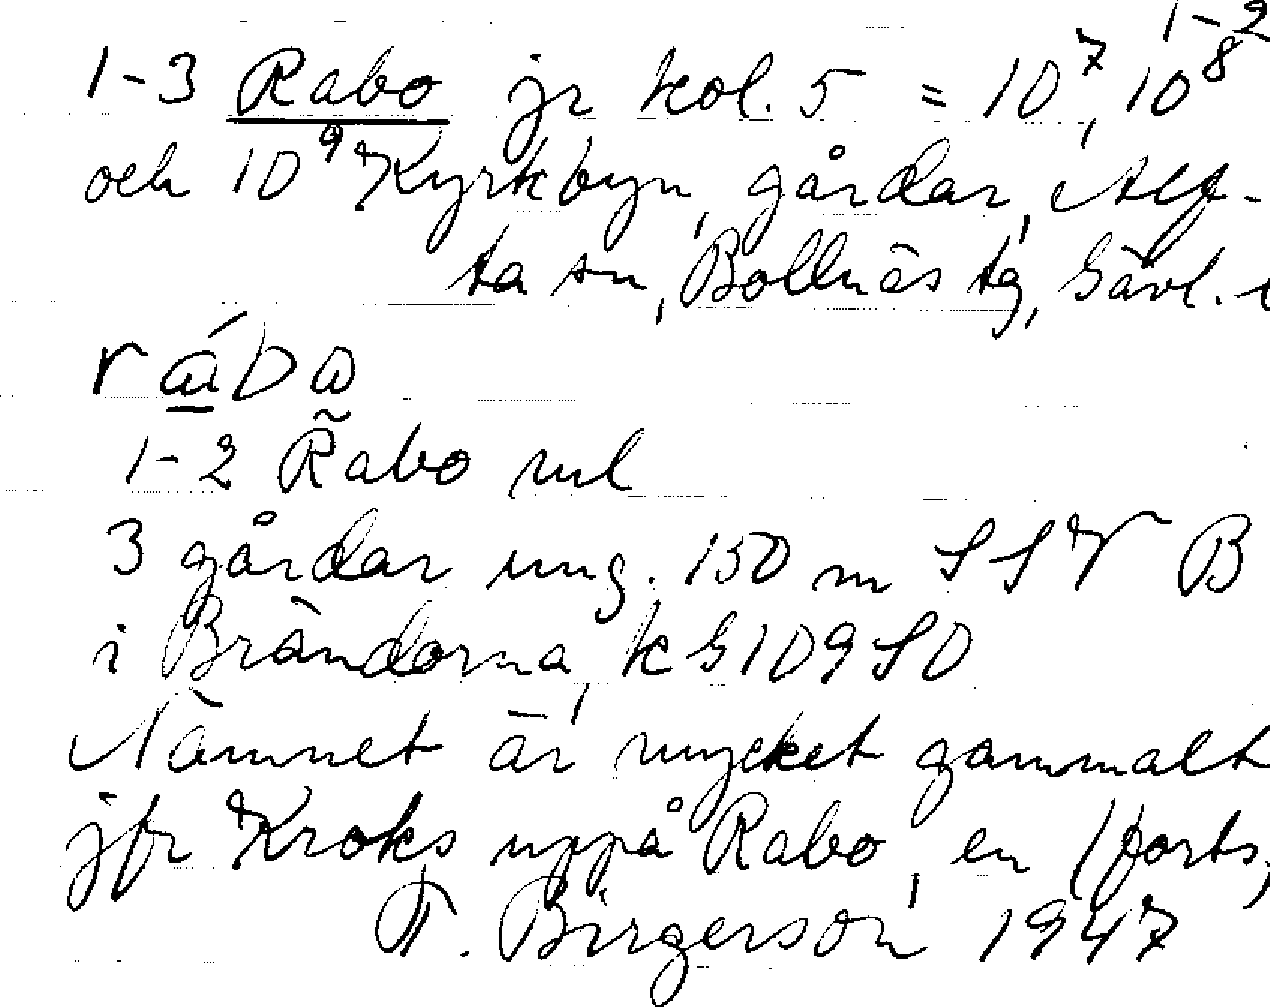 1-2
1-3 Rabo jr kol. 5 = 10⁷, 10⁸
och 10⁹ Kyrkbyn, gårdar, Alf-
ta sn, Bollnäs tg, Gävl.
rábo
1-2 R̃abo ml
3 gårdar ung. 150 m SSV B
i Brändorna, k G109SO
Namnet är mycket gammalt
jfr Kroks uppå Rabo, en (forts,
T. Birgerson 1947